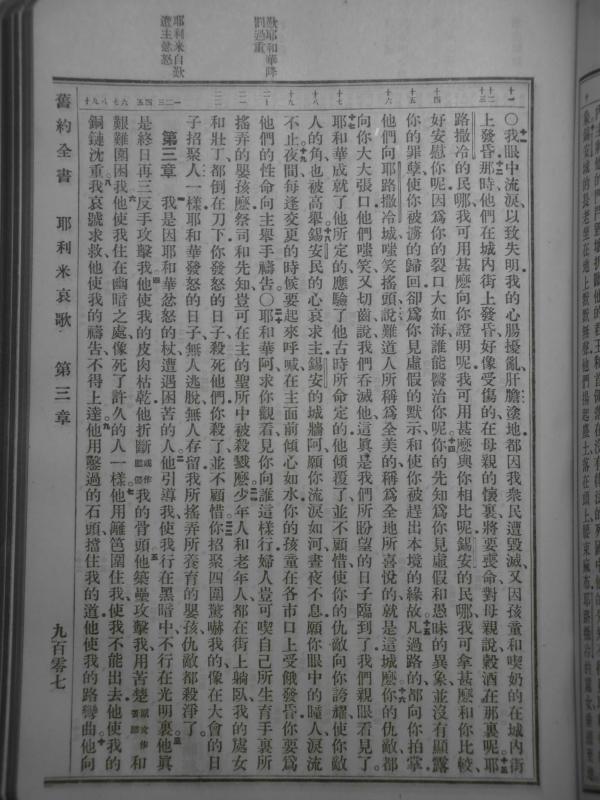 歎耶和華降
罰過重
耶利米自歎
遭主忿怒
〇我眼中流淚以致失明我的心腸擾亂肝膽塗地都因我衆民遭毀滅又因孩童和喫奶的在城內街
上發昏那時他們在城內街上發昏好像受傷的在母親的懷裏將要喪命對母親說穀酒在那裏呢耶
路撒冷的民哪我可用甚麼向你證明呢我可用甚麼與你相比呢錫安的民哪我可拿甚麼和你比較
好安慰你呢因爲你的裂口大如海誰能醫治你呢你的先知爲你見虛假和愚昧的異象並沒有顯露
你的罪孽使你被擄的歸回卻爲你見虛假的默示和使你被趕出本境的緣故凡過路的都向你拍掌
他們向耶路撒冷城嗤笑搖頭說難道人所稱爲全美的稱爲全地所喜悅的就是這城麼你的仇敵都
向你大大張口他們嗤笑又切齒說我們吞滅他這眞是我們所盼望的日子臨到了我們親眼看見了
耶和華成就了他所定的應驗了他古時所命定的他傾覆了並不顧惜使你的仇敵向你誇耀使你敵
人的角也被高舉錫安民的心哀求主錫安的城牆阿願你流淚如河晝夜不息願你眼中的瞳人淚流
不止夜間每逢交更的時候要起來呼喊在主面前傾心如水你的孩童在各市口上受餓發昏你要爲
他們的性命向主舉手禱告〇耶和華阿求你觀看見你向誰這樣行婦人豈可喫自己所生育手裏所
搖弄的嬰孩麼祭司和先知豈可在主的聖所中被殺戮麼少年人和老年人都在街上躺臥我的處女
和壯丁都倒在刀下你發怒的日子殺死他們你殺了並不顧惜你招聚四圍驚嚇我的像在大會的日
子招聚人一樣耶和華發怒的日子無人逃脫無人存留我所搖弄所養育的嬰孩仇敵都殺淨了
第三章　我是因耶和華忿怒的杖遭遇困苦的人他引導我使我行在黑暗中不行在光明裏他眞
是終日再三反手攻擊我他使我的皮肉枯乾他折斷我的骨頭他築壘攻擊我用苦楚和
艱難圍困我他使我住在幽暗之處像死了許久的人一樣他用籬笆圍住我使我不能出去他使我的
銅鏈沈重我哀號求救他使我的禱告不得上達他用鑿過的石頭擋住我的道他使我的路彎曲他向
舊約全書　耶利米哀歌　第三章　九百零七